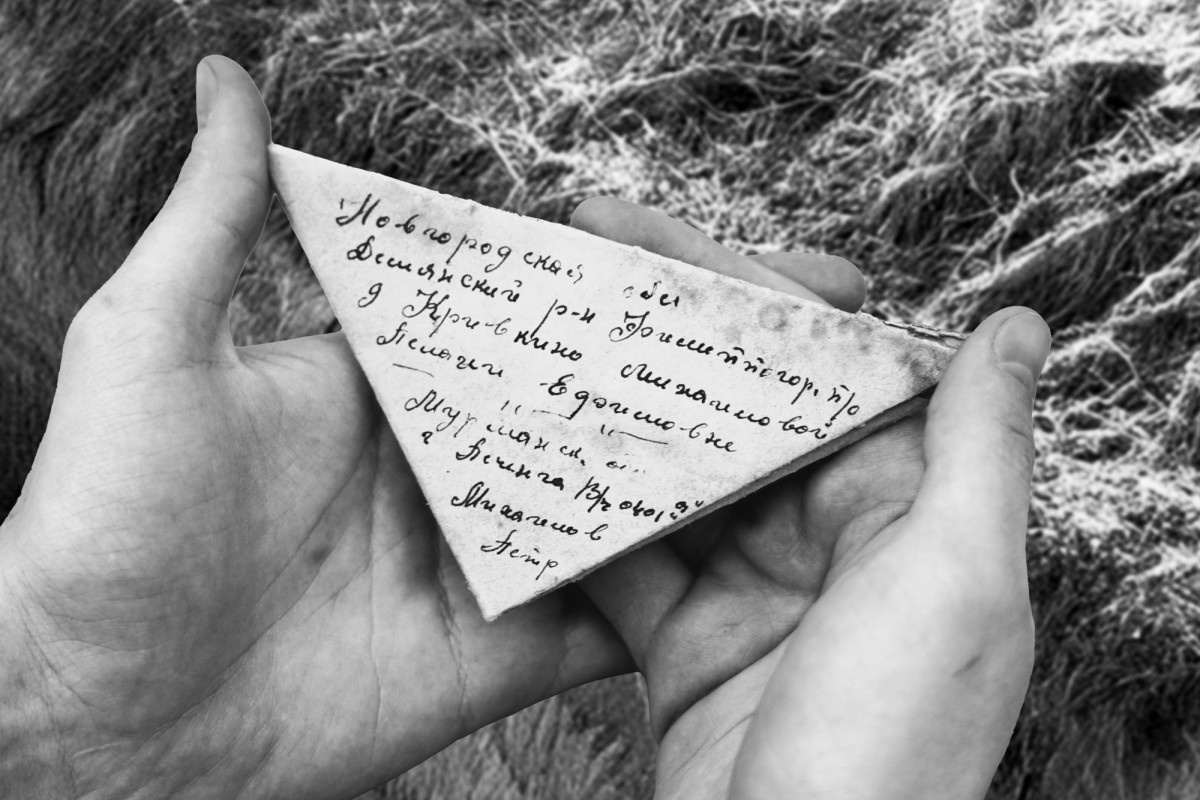 Новгородской обл
Демянский р-н Филиппогор. п/о
д Кривкино Михайловой
Пелагеи Ефимовне
Мурманск. об
г Печенга В/ч
Михайлов
Петр